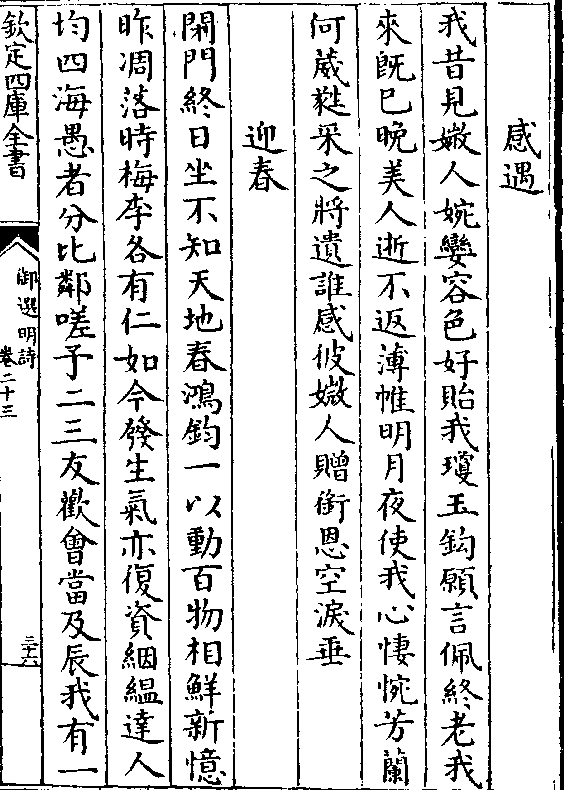 感遇
我昔見媺人婉孌容色好貽我瓊玉鈎願言佩終老我
來既已晚美人逝不返薄帷明月夜使我心悽惋芳蘭
何葳蕤采之將遺誰感彼媺人贈銜恩空淚垂
迎春
閉門終日坐不知天地春鴻鈞一以動百物相鮮新憶
昨凋落時梅李各有仁如今發生氣亦復資絪縕達人
均四海愚者分比鄰嗟予二三友歡會當及辰我有一
欽定四庫全書
御選明詩
卷二十三
三十六